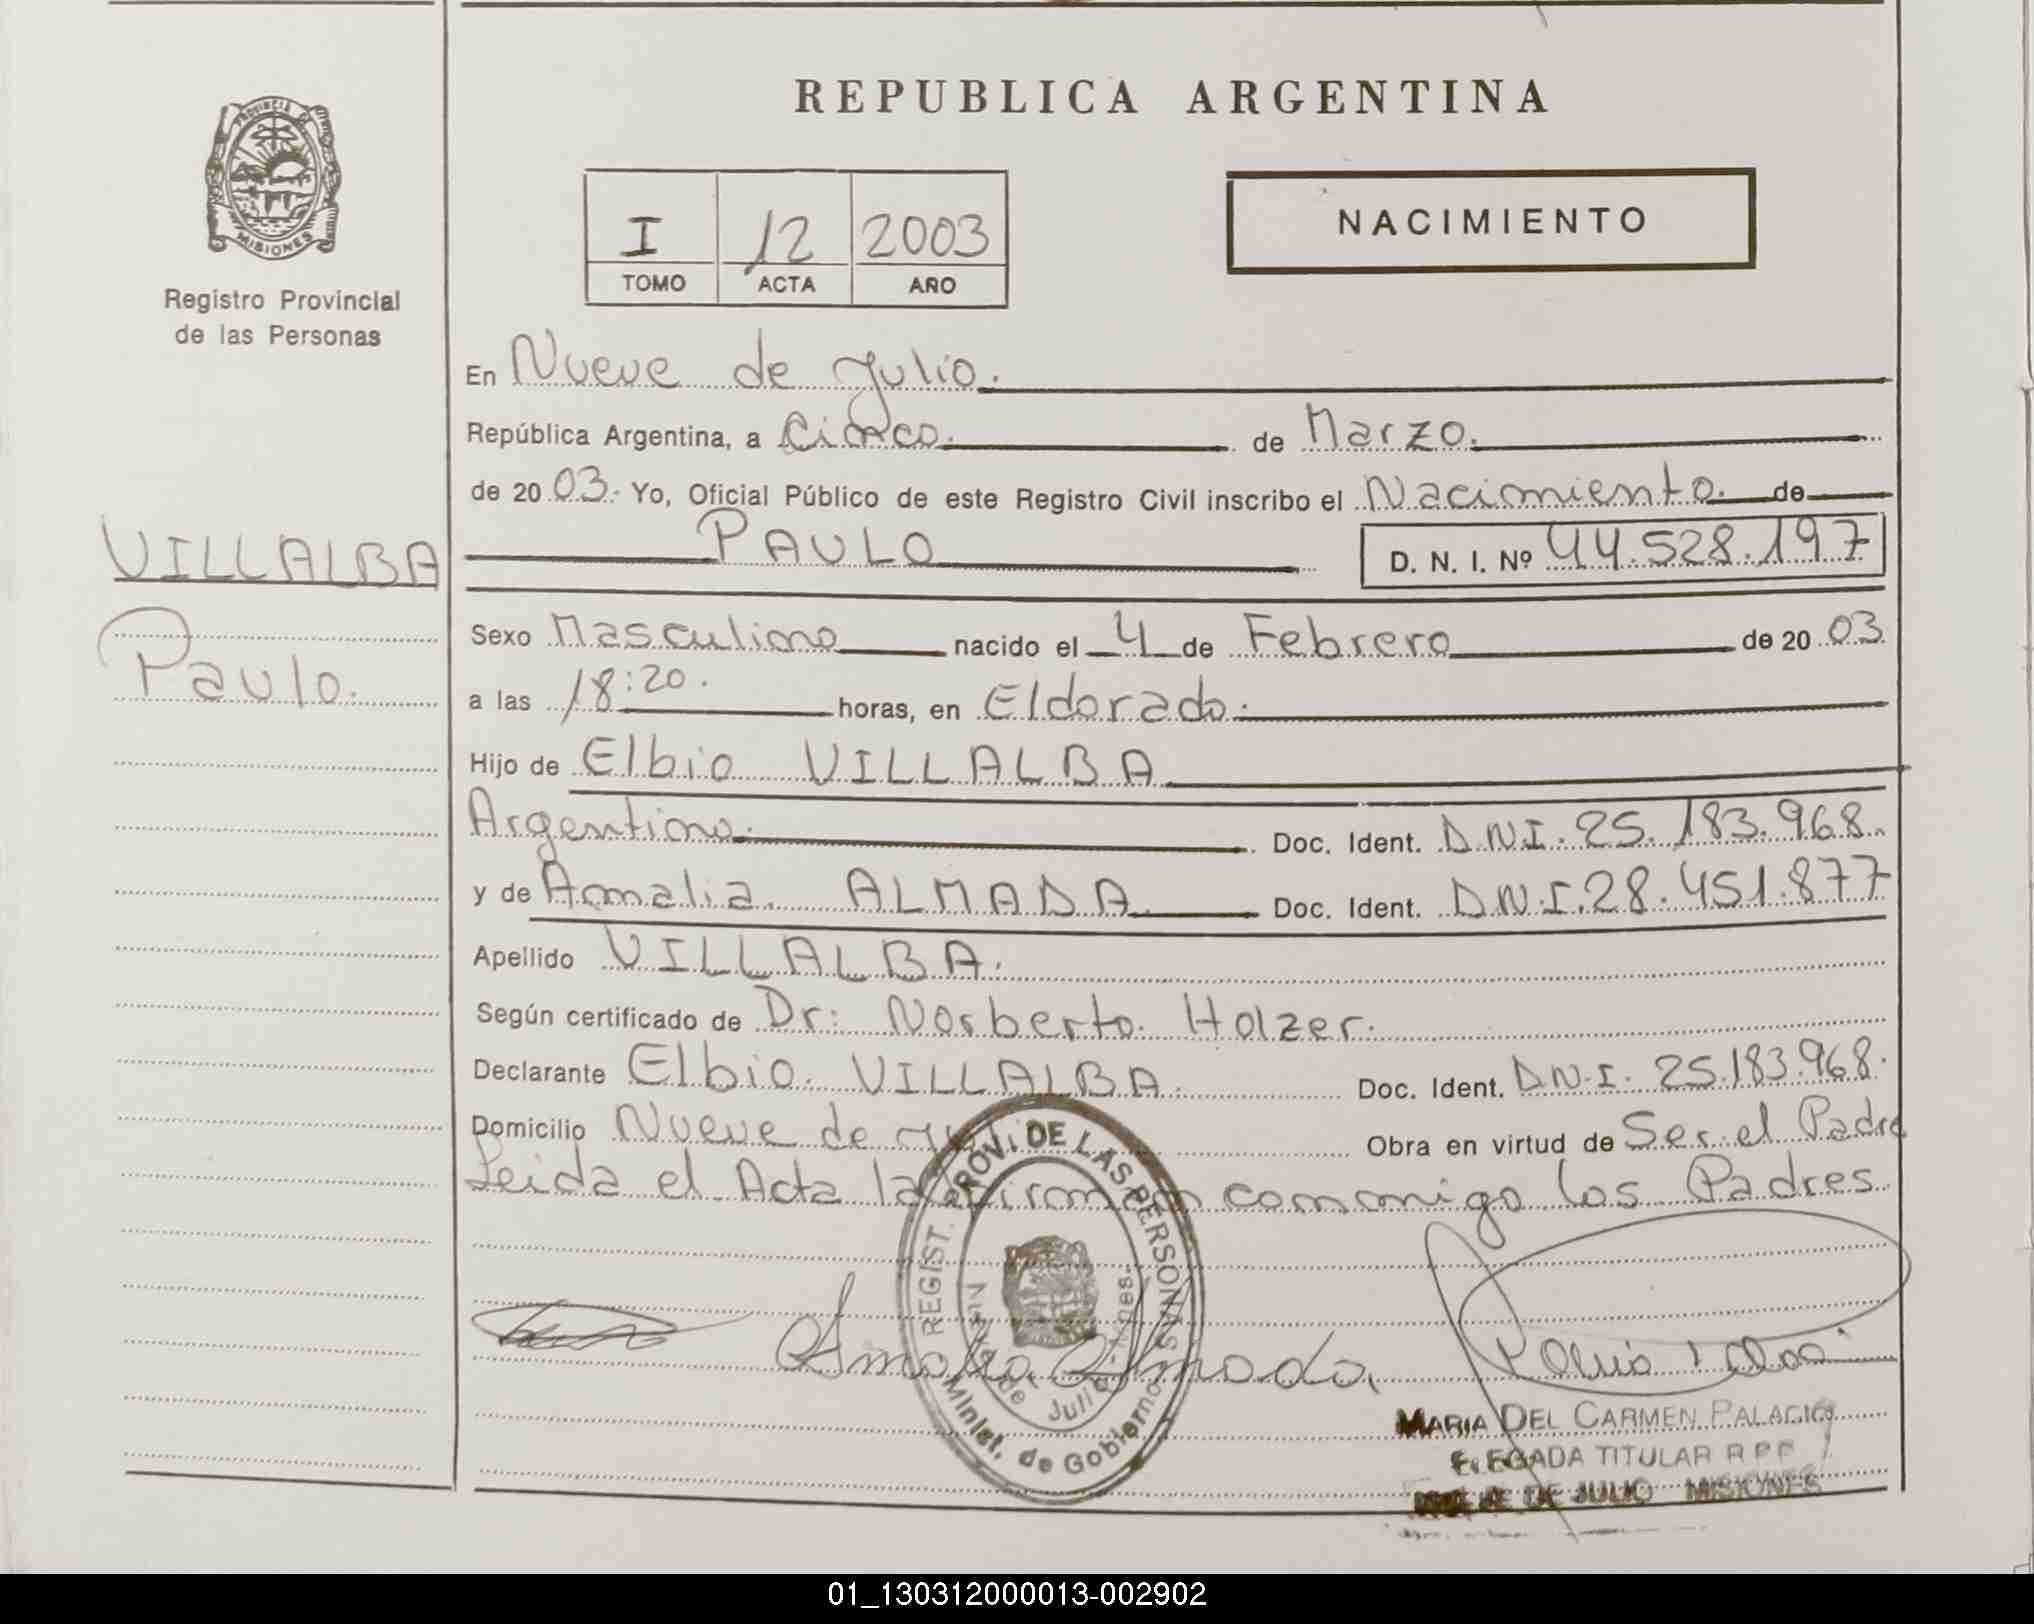 REPUBLICA ARGENTINA
PROVINCIA DE
MISIONES
Registro Provincial
de las Personas
I 12 2003
TOMO ACTA AÑO
NACIMIENTO
En Nueve de Julio.
República Argentina, a Cinco. de Marzo.
de 20 03. Yo, Oficial Público de este Registro Civil inscribo el Nacimiento. de
VILLALBA
Paulo.
PAULO D. N. I. Nº 44.528.197
Sexo Masculino nacido el 4 de Febrero de 20 03
a las 18:20. horas, en Eldorado.
Hijo de Elbio VILLALBA
Argentino. Doc. Ident. D.N.I. 25.183.968.
y de Amalia ALMADA Doc. Ident. D.N.I. 28.451.877
Apellido VILLALBA.
Según certificado de Dr: Norberto Holzer.
Declarante Elbio VILLALBA. Doc. Ident. D.N.I. 25.183.968.
Domicilio Nueve de Obra en virtud de Ser el Padre
Leida el Acta la firman conmigo los Padres
REGIST. PROVI. DE LAS PERSONAS
de Julio
Minist. de Gobierno
Amalia Almada.
MARIA DEL CARMEN PALACIO
TITULAR R P P
DE JULIO MISIONES
01_130312000013-002902